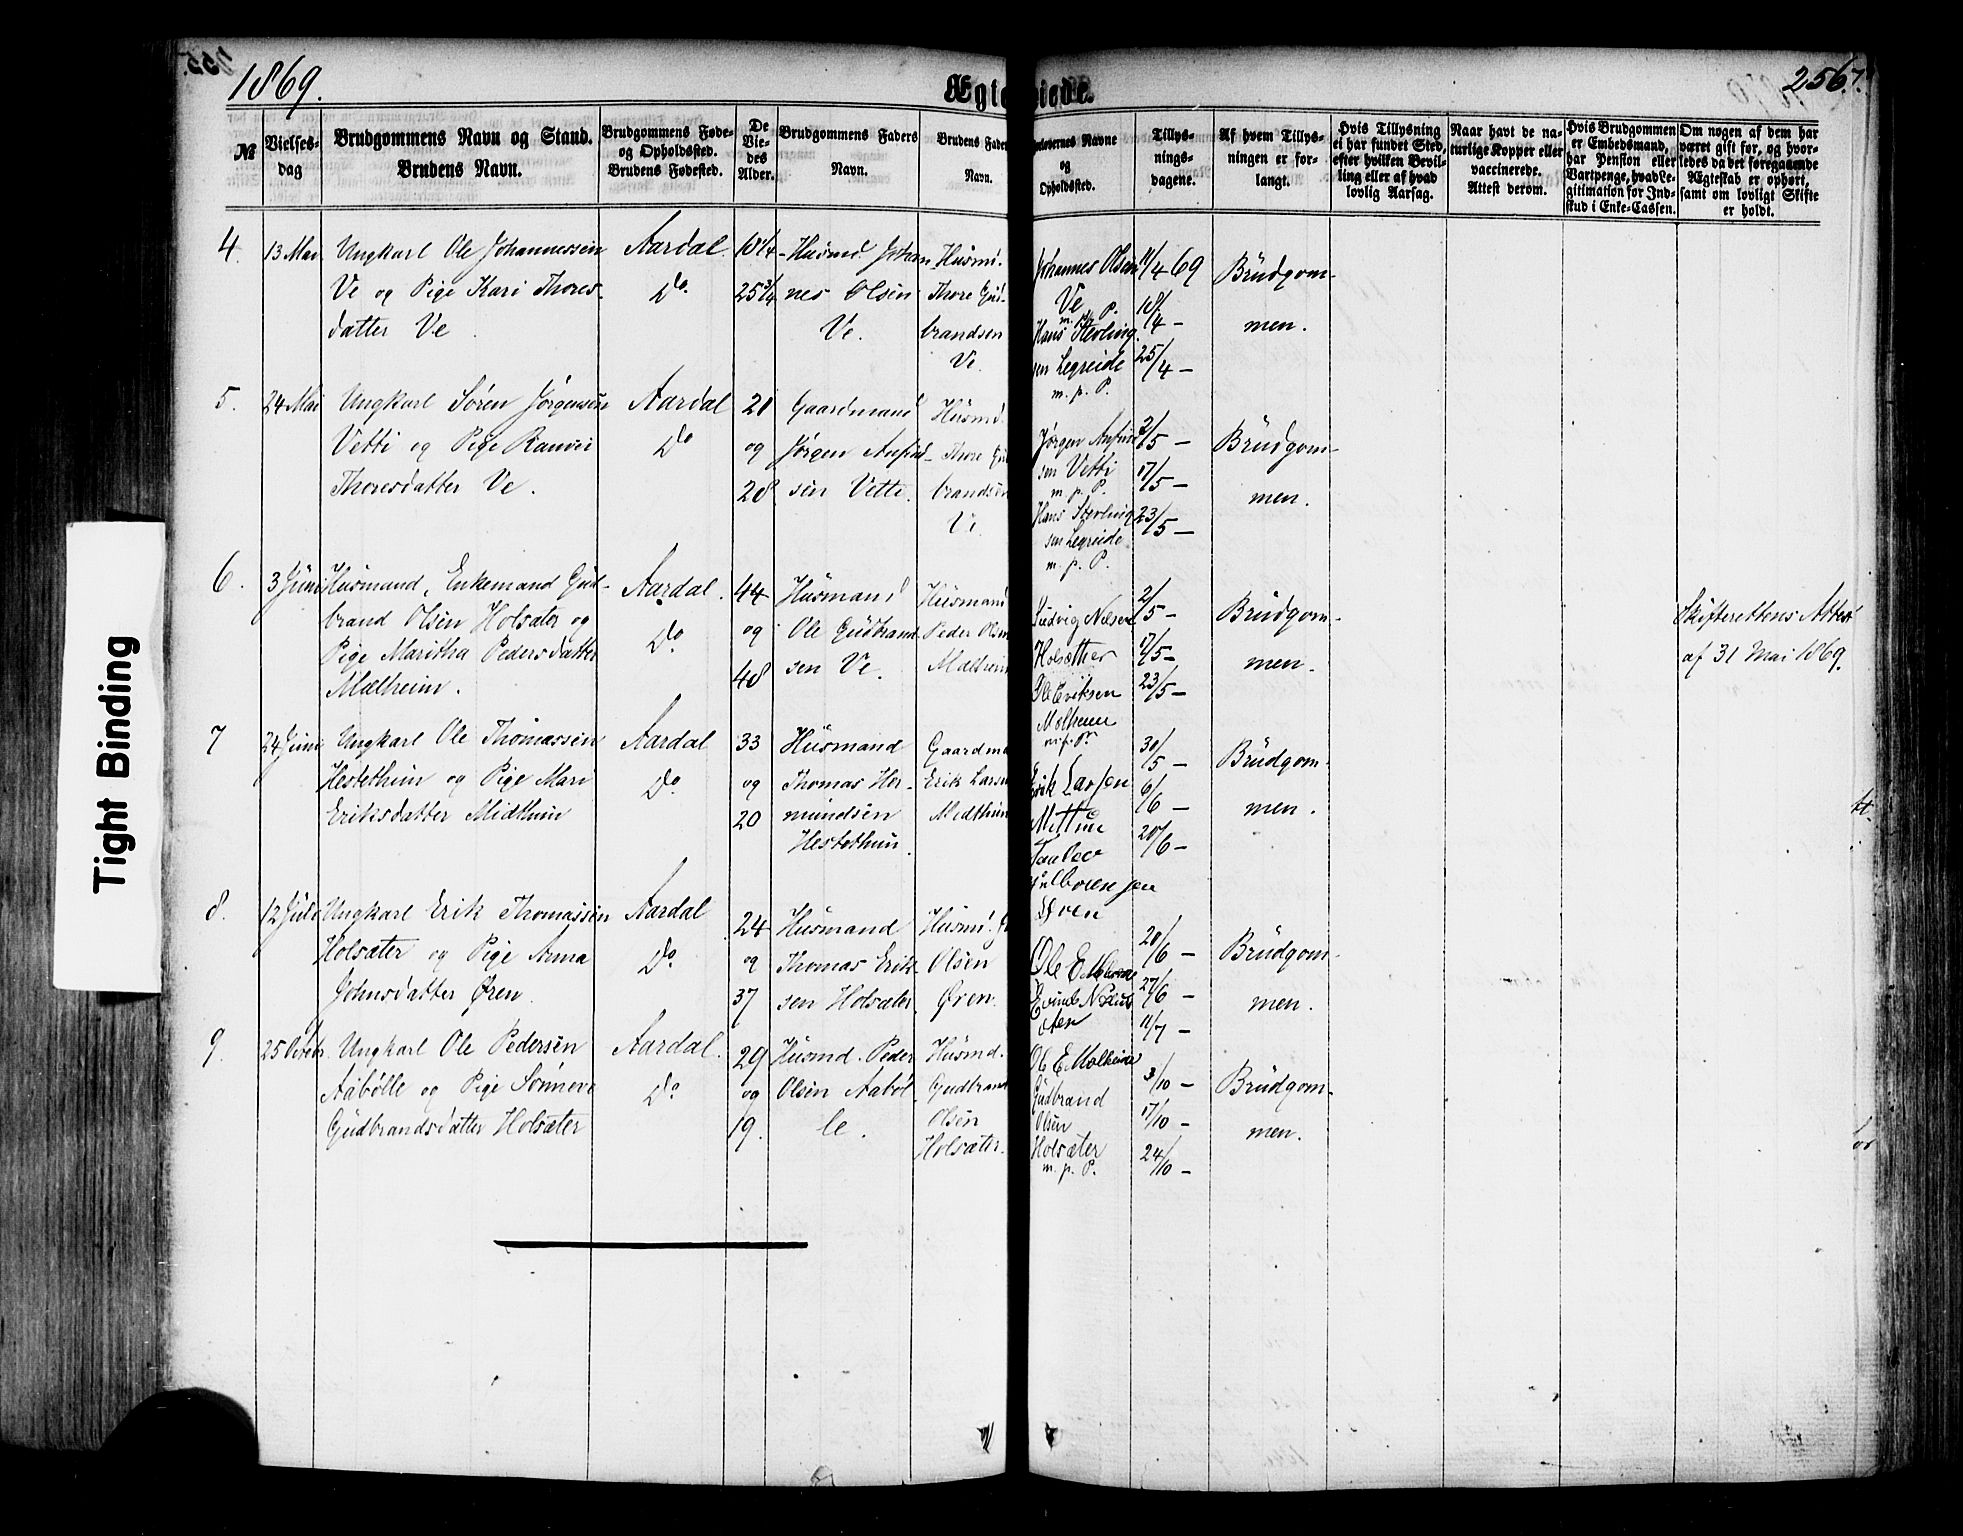 1869.
Ægteviede.
256.
Tight Binding
№
Vielses-
dag
Brudgommens Navn og Stand.
Brudens Navn.
Brudgommens Føde-
og Opholdssted.
Brudens Fødested.
De
Vie-
des
Alder.
Brudgommens Faders
Navn.
Brudens Fader
Navn.
Forlovernes Navne
og
Opholdssted.
Tillys-
nings-
dagene.
Af hvem Tillys-
ningen er for-
langt.
Hvis Tillysning
ei har fundet Sted,
efter hvilken Bevil-
ling eller af hvad
lovlig Aarsag.
Naar havt de na-
turlige Kopper eller
vaccinerede.
Attest derom.
Hvis Brudgommen
er Embedsmand,
har Pension eller
Vartpenge, hvad Le-
gitimation for Ind-
skud i Enke-Cassen.
Om nogen af dem har
været gift før, og hvor-
ledes da det foregaaende
Ægteskab er ophørt,
samt om lovligt Skifte
er holdt.
4.
13 Mai
Ungkarl Ole Johannessen
Ve og Pige Kari Thores-
datter Ve.
Aardal
Do
25 3/4
Husmd. Johan-
nes Olsen
Ve.
Husmd.
Thore Gud-
brandsen
Ve.
Johannes Olsen
Ve
m. p. P.
Hans Sterling-
sen Legreide
m. p. P.
11/4 69
18/4 -
25/4 -
Brudgom-
men.
5.
24 Mai
Ungkarl Søren Jørgensen
Vetti og Pige Ranvei
Thoresdatter Ve.
Aardal
Do
21
og
28
Gaardmand
Jørgen Anfind-
sen Vetti.
Husmd.
Thore Gud-
brandsen
Ve.
Jørgen Anfind
sen Vetti
m. p. P.
Hans Sterling
sen Legreide
m. p. P.
2/5 -
17/5 -
23/5 -
Brudgom-
men.
6.
3 Juni
Husmand, Enkemand Gud-
brand Olsen Holsæter og
Pige Maritha Pedersdatter
Mælheim.
Aardal.
Do
44
og
48
Husmand
Ole Gudbrand-
sen Ve.
Husmand
Peder Olsen
Mælheim
Ludvig Nielsen
Holsæther
Ole Eriksen
Molheim
2/5 -
17/5 -
23/5 -
Brudgom-
men.
Skifterettens Attest
af 31 Mai 1869.
7
24 Juni
Ungkarl Ole Thomassen
Hestethun og Pige Mari
Eriksdatter Midthun
Aardal
Do
33
og
20
Husmand
Thomas Her-
mundsen
Hestethun.
Gaardmd
Erik Larsen
Midthun
Erik Larsen
Mittun
Øren
30/5 -
6/6 -
20/6 -
Brudgom-
men.
8.
12 Juli
Ungkarl Erik Thomassen
Holsæter og Pige Anna
Johnsdatter Øren.
Aardal
Do
24
og
37
Husmand
Thomas Erik-
sen Holsæter.
Husmd.
Olsen
Øren.
Ole E Molheim
20/6 -
27/6 -
11/7 -
Brudgom-
men.
9.
25 Octbr.
Ungkarl Ole Pedersen
Aabølle og Pige Sønneve
Gudbrandsdatter Holsæter
Aardal.
Do
29
og
19.
Husmd. Peder
Olsen Aabøl-
le.
Husmd.
Gudbrand
Olsen
Holsæter.
Ole E Molheim
Gudbrand
Olsen
Holsæter
m. p. P.
3/10 -
17/10 -
24/10 -
Brudgom-
men.